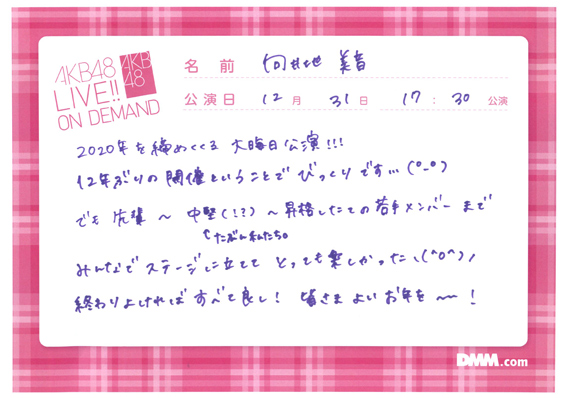 AKB48
LIVE!!
ON DEMAND
AKB
48
名前 向井地 美音
公演日 12月 31日 17:30 公演
2020年を締めくくる 大晦日公演!!!
12年ぶりの開催ということで びっくりです…(°-°)
でも 先輩 〜 中堅(!?) 〜 昇格したての若手メンバー まで
↑たぶん私たち。
みんなで ステージに立てて とっても楽しかった、\(^o^)/
終わりよければ すべて良し! 皆さま よい お年を 〜!
DMM.com